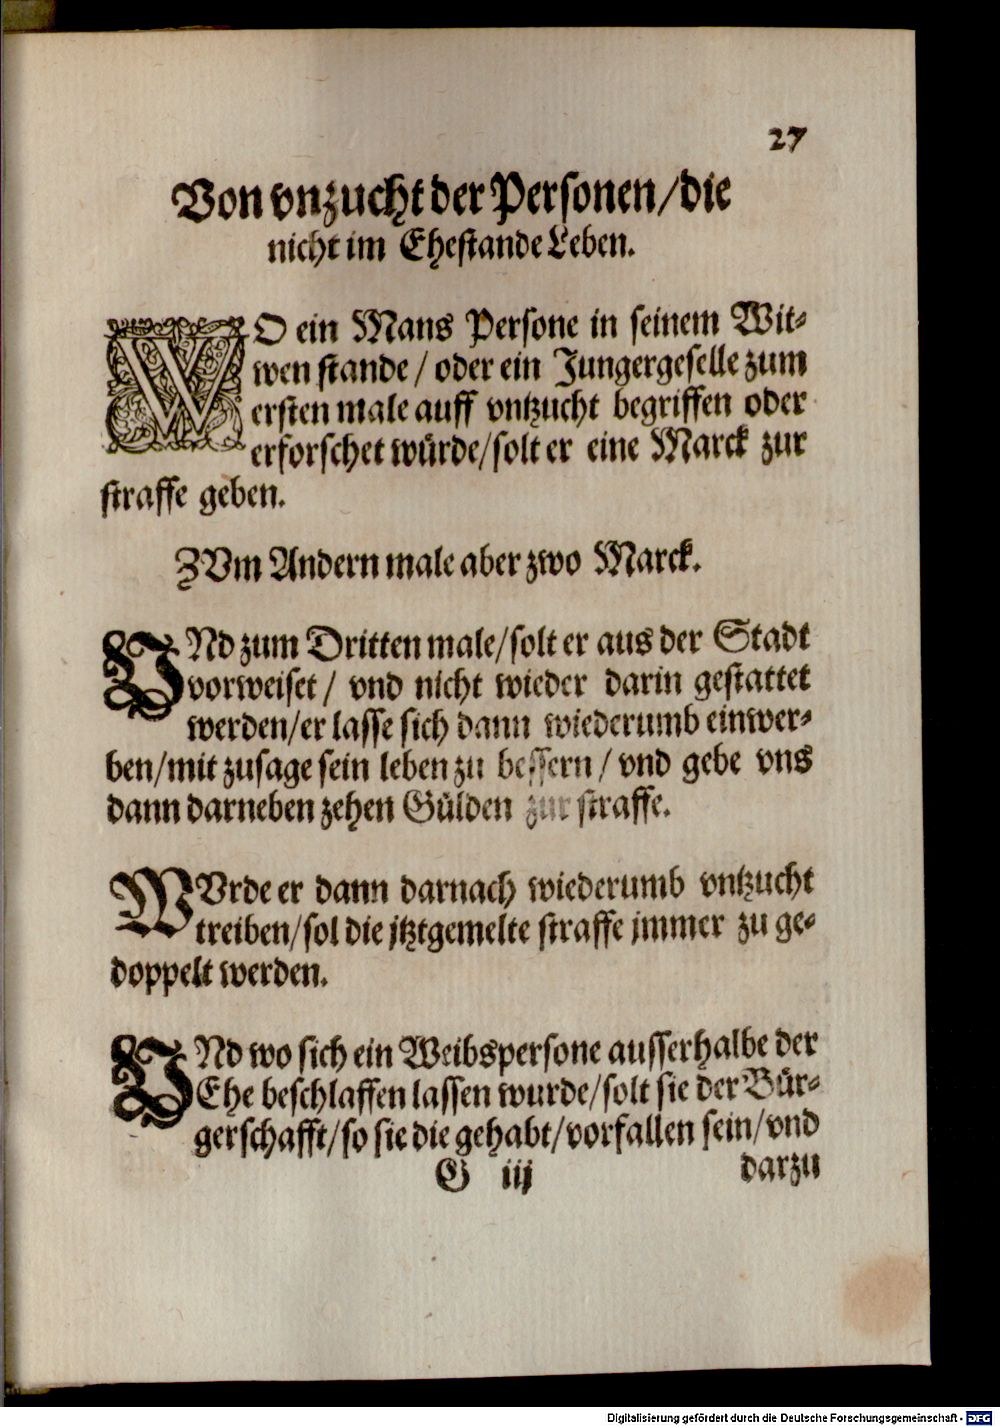 27
Von vnzucht der Personen/die
nicht im Ehestande Leben.
WO ein Mans Persone in seinem Wit-
wen stande / oder ein Jungergeselle zum
ersten male auff vntzucht begriffen oder
erforschet würde/solt er eine Marck zur
straffe geben.
ZVm Andern male aber zwo Marck.
VNd zum Dritten male/solt er aus der Stadt
vorweiset / vnd nicht wieder darin gestattet
werden/er lasse sich dann wiederumb einwer-
ben/mit zusage sein leben zu bessern / vnd gebe vns
dann darneben zehen Gülden zur straffe.
WVrde er dann darnach wiederumb vntzucht
treiben/sol die jtztgemelte straffe jmmer zu ge-
doppelt werden.
VNd wo sich ein Weibspersone ausserhalbe der
Ehe beschlaffen lassen wurde/solt sie der Bür-
gerschafft/so sie die gehabt/vorfallen sein/vnd
G iij darzu
Digitalisierung gefördert durch die Deutsche Forschungsgemeinschaft - DFG